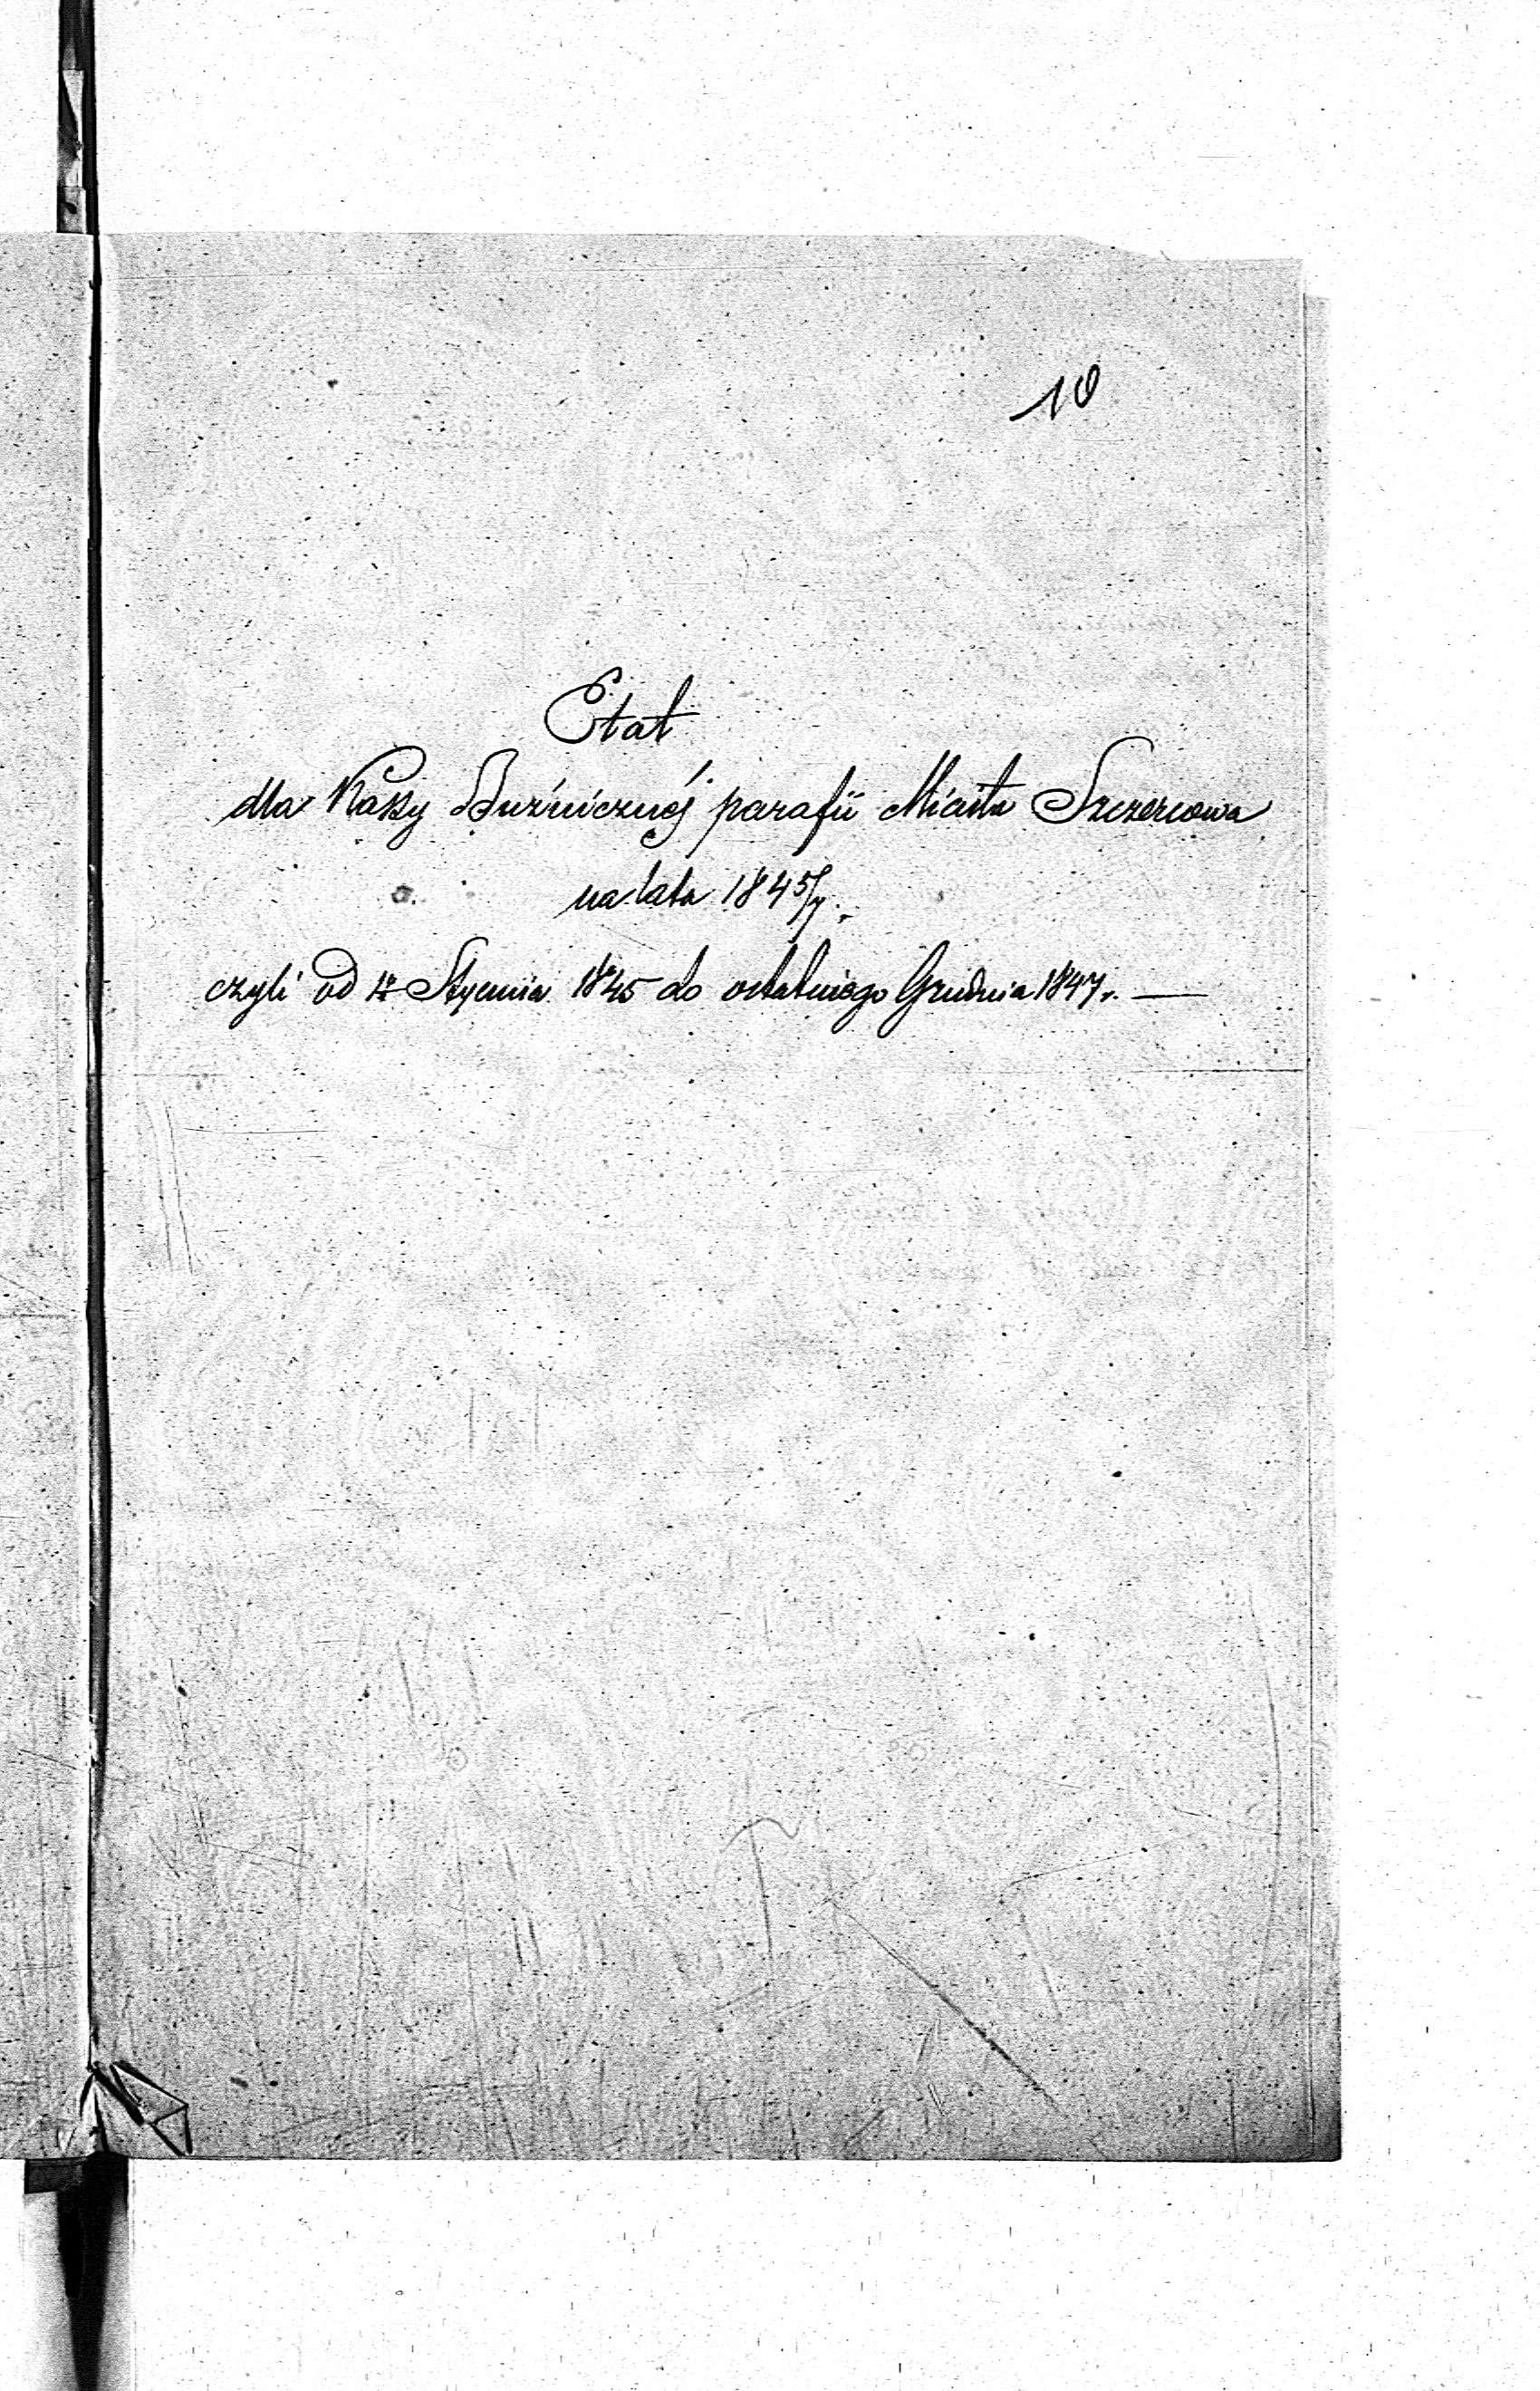 10
Etat
dla Kassy Bużnicznéj parafii Miasta Szczercowa
na lata 1845/7.
czyli od 1º Stycznia 1845 do ostatniego Grudnia 1847r. —